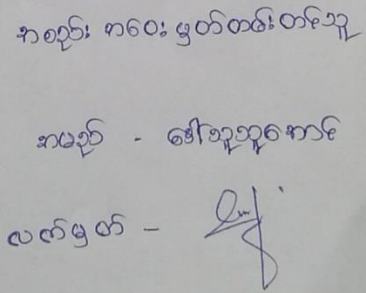 အစည်းအဝေးမှတ်တမ်းတင်သူ
အမည် - ဒေါ်သူသူအောင်
လက်မှတ် -